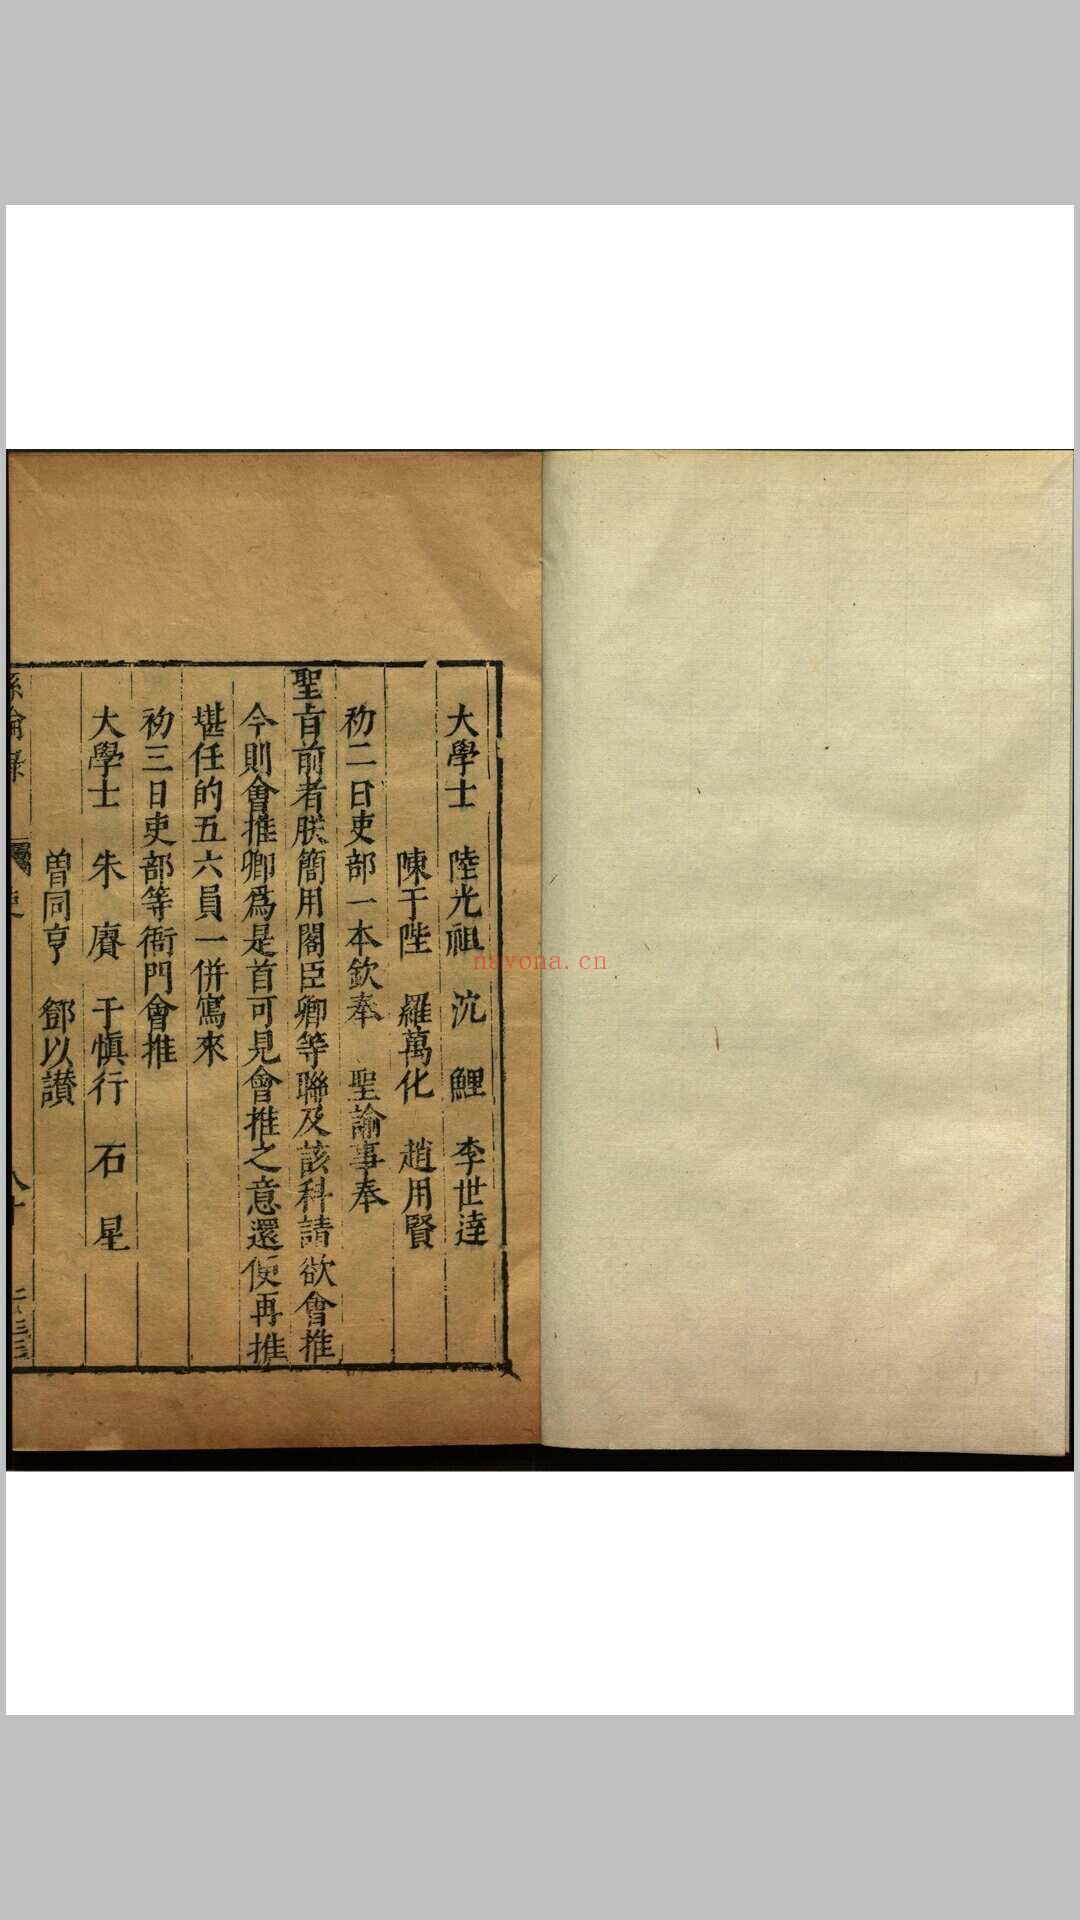 大學士 陸光祖 沈鯉 李世達
陳于陛 羅萬化 趙用賢
初二日吏部一本欽奉 聖諭事奉
聖旨前者朕簡用閣臣卿等聯及該科請欲會推
今則會推卿爲是首可見會推之意還便再推
堪任的五六員一併寫來
初三日吏部等衙門會推
大學士 朱賡 于慎行 石星
曾同亨 鄧以讃
nayona.cn